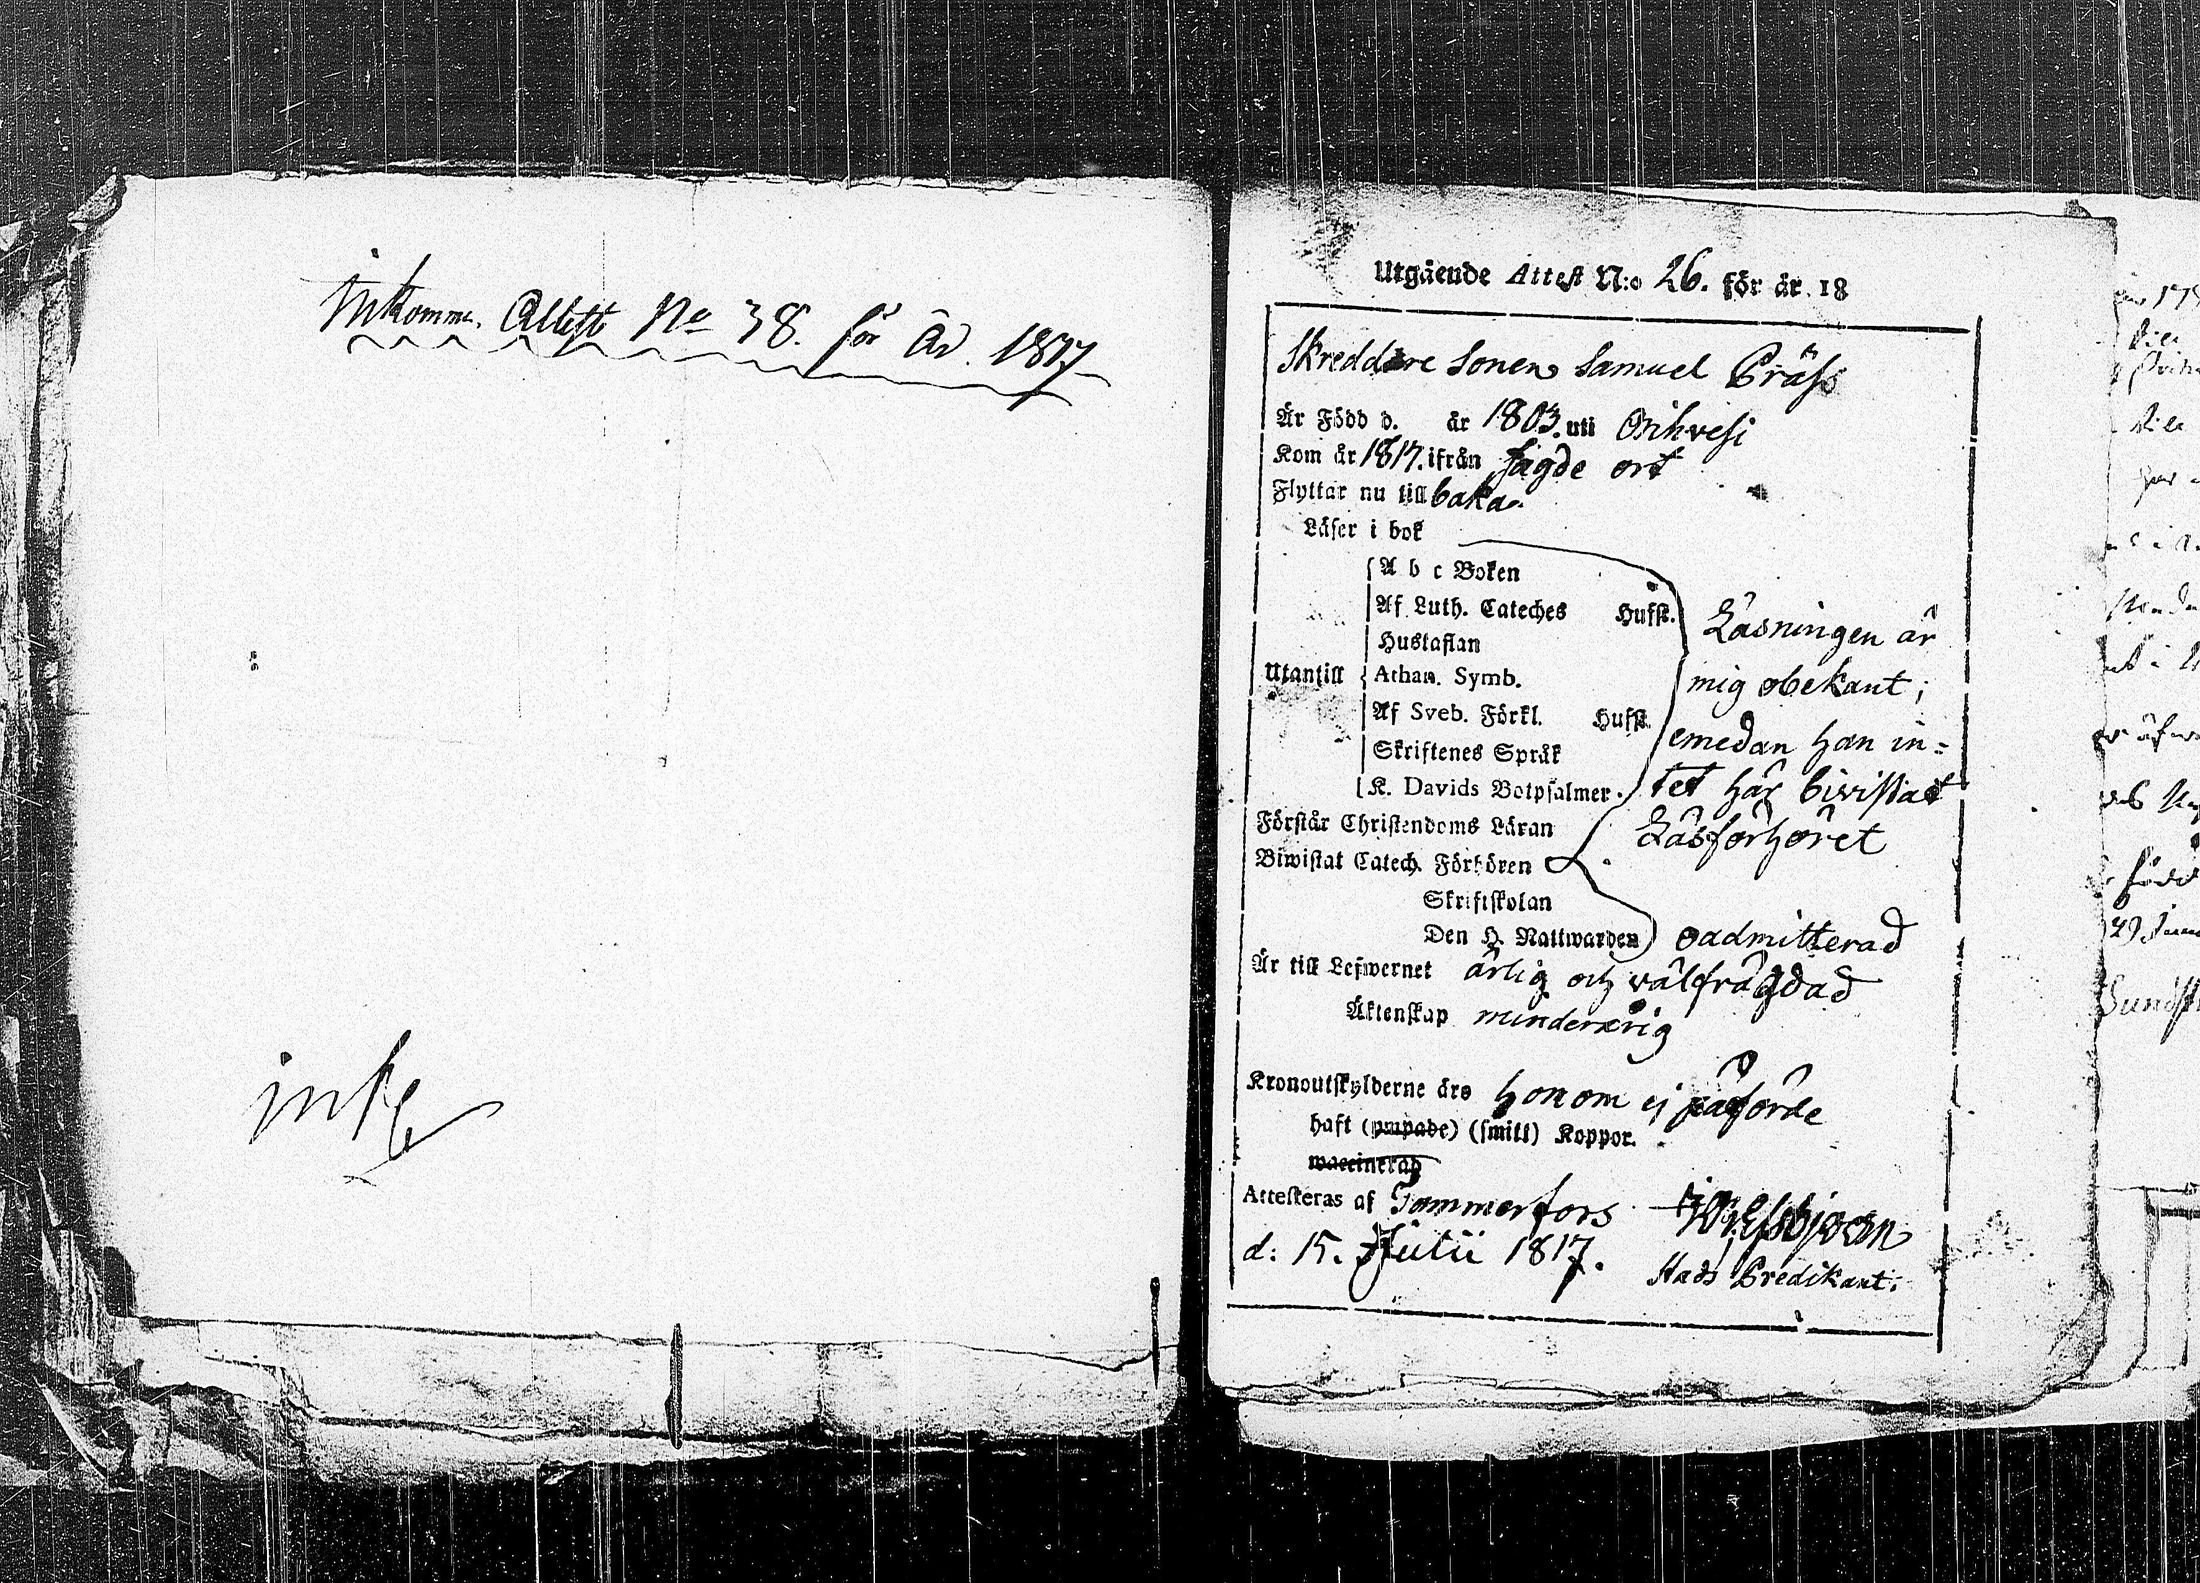 Inkomne. Attest No 38. för År. 1817
inf
Utgående Attest N:o 26. för år 18
Skreddare Sonen Samuel Präss
Är Född d. år 1803. uti Orihvesi
Kom år 1817. ifrån sagde ort
Flyttar nu till baka.
Läser i bok
A b c Boken
Af Luth. Cateches Hufst.
Hustaflan
Utantill Athan. Symb.
Af Sveb. Förkl. Hufst.
Skriftenes Språk
K. Davids Botpsalmer.
Läsningen är
mig obekant,
emedan han in=
tet här biwistat
Läsförhöret
Förstår Christendoms Läran
Biwistat Catech. Förhören
Skriftskolan
Den H. Nattwarden oadmitterad
Är till Lefwernet ärlig och välfrägdad
Äktenskap minderårig
Kronoutskylderne äro honom ej påförde
haft (ympade) (smitt) Koppor.
waccinerad
Attesteras af Tammerfors
d: 15. Julii 1817. Stads Predikant.